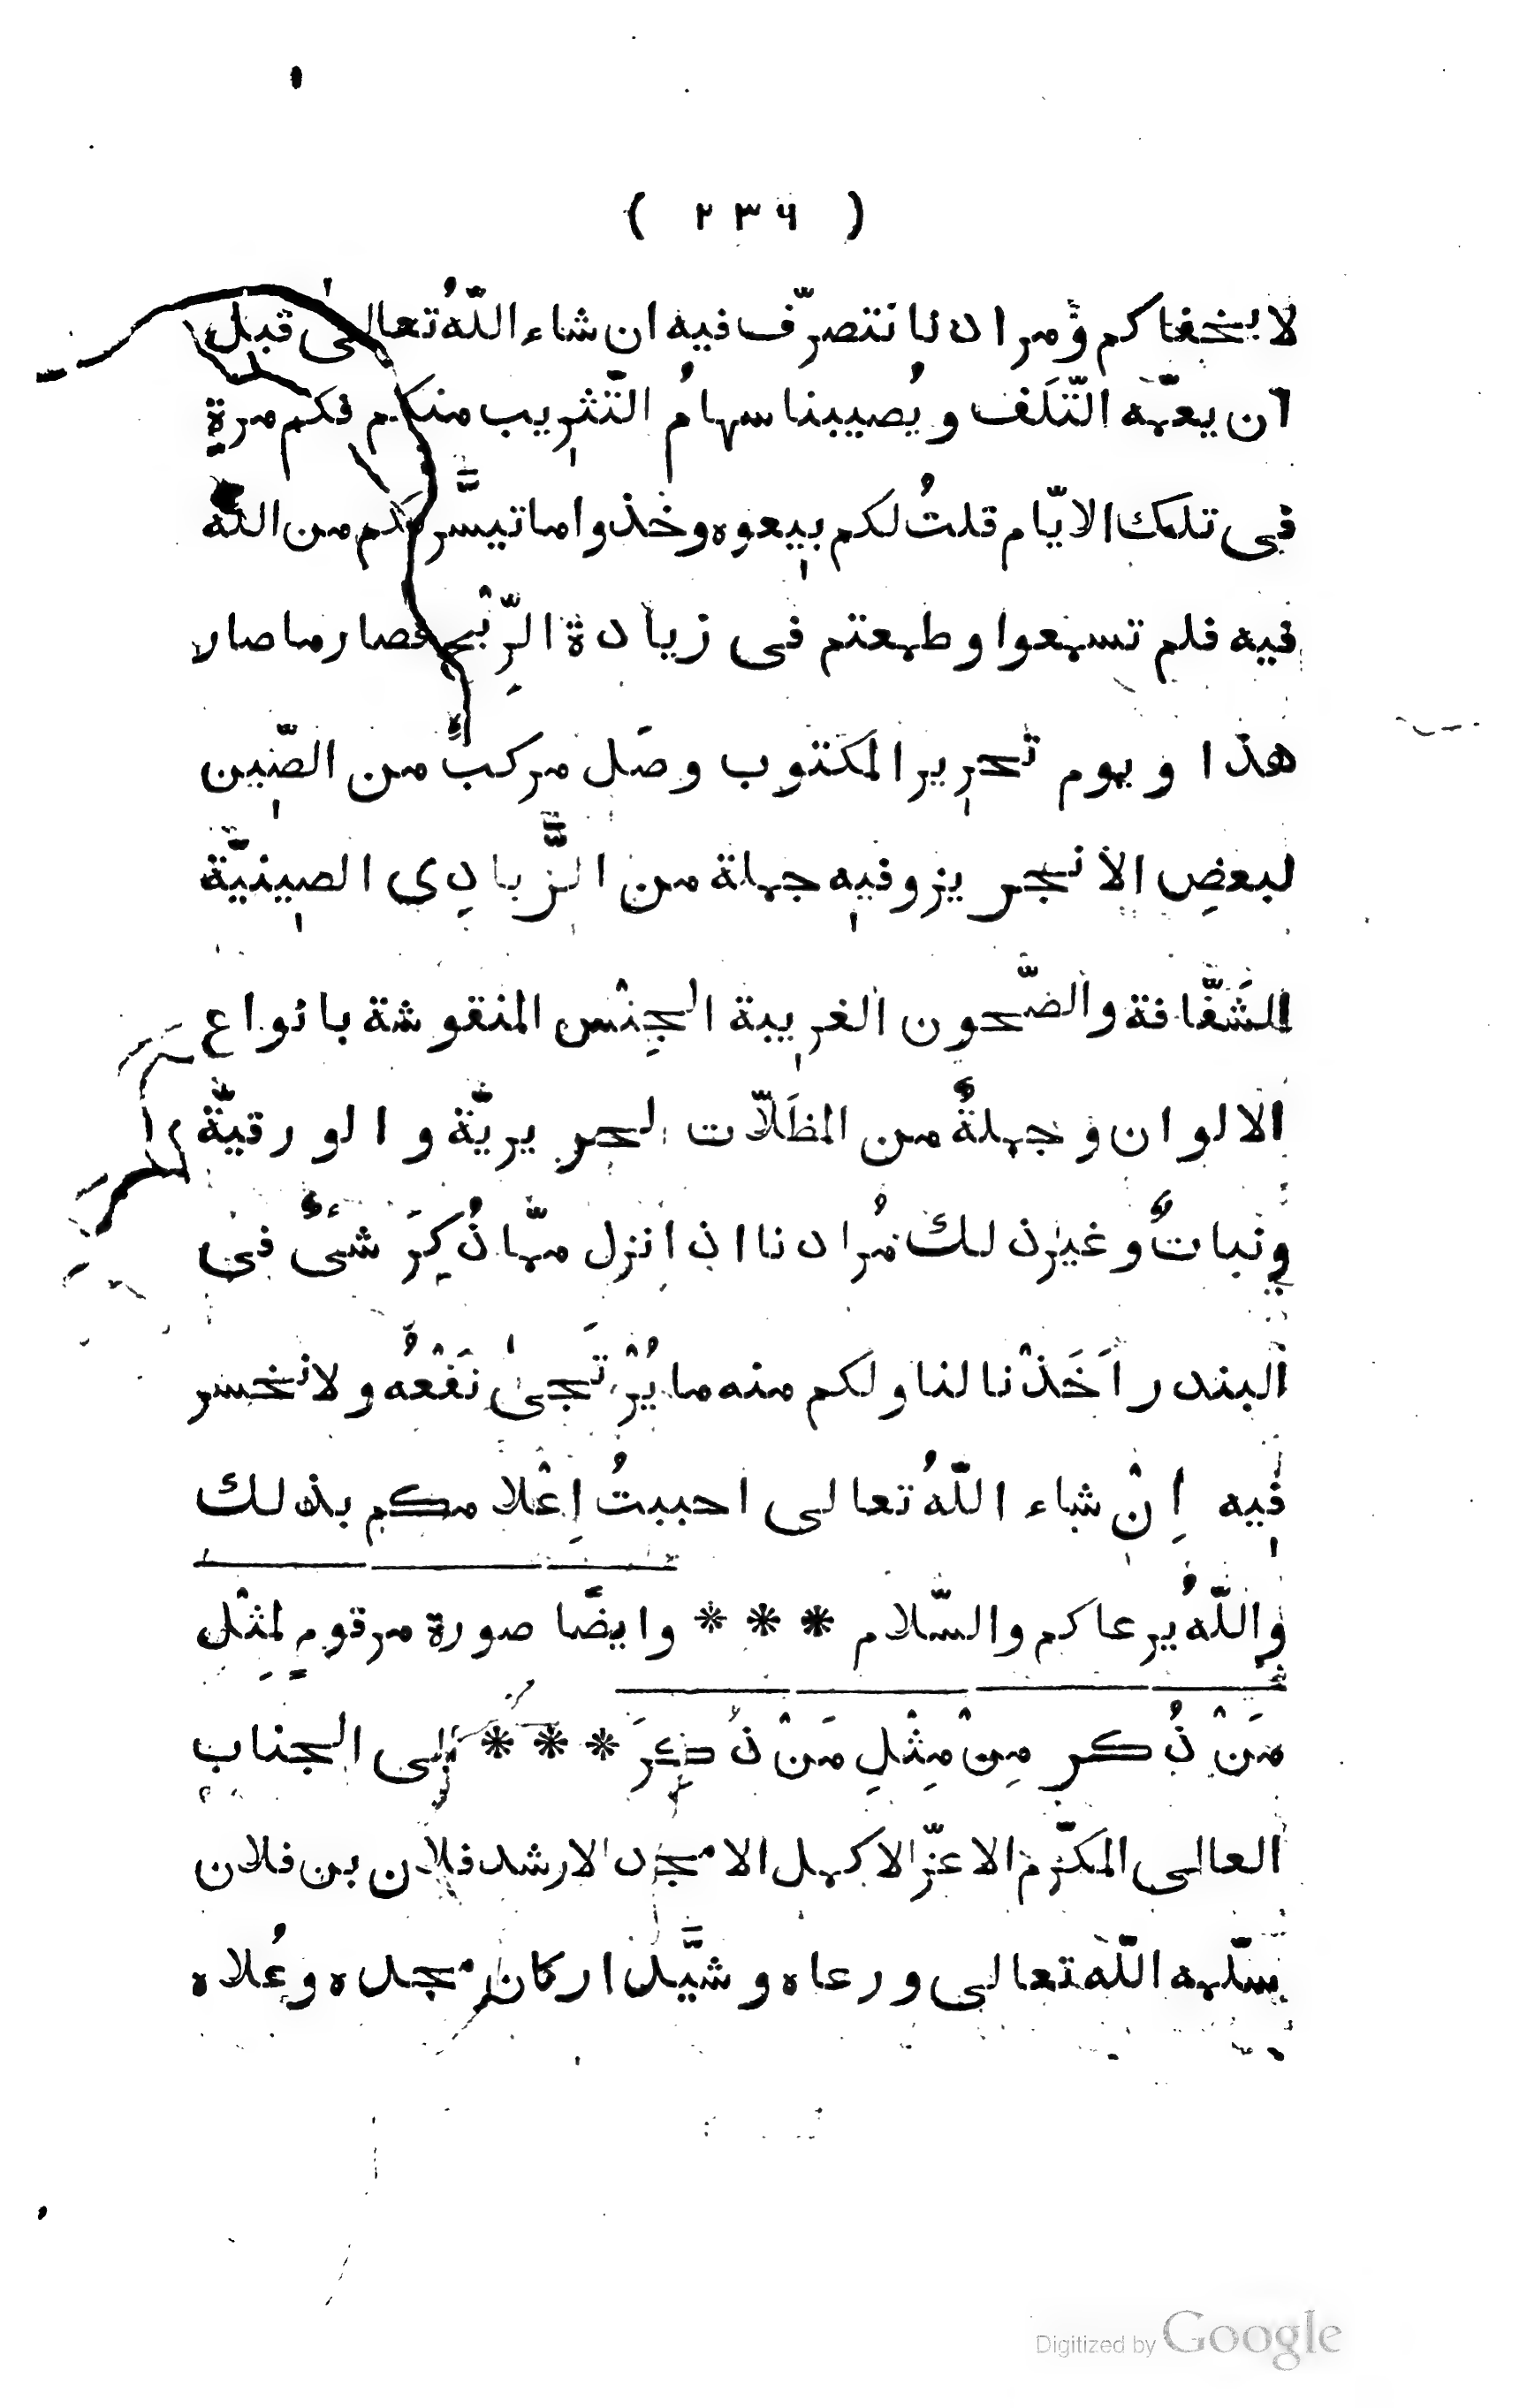 ( ٢٣٦ )
لا يخفاكم ومرادنا نتصرّف فيه ان شاء اللّهُ تعالىٰ قبل
ان يعمّه التّلَف ويُصيبنا سهامُ التّثرِيب منكم فكم مرةٍ
في تلك الايّام قلتُ لكم بيعوه وخذوا ما تيسَّر لكم من اللّه
فيه فلم تسمعوا وطمعتم في زيادة الرِّبْح فصار ما صار
هذا ويوم تحرير المكتوب وصَل مركبٌ من الصّين
لبعضِ الانجريز وفيه جملة من الزَّبادِي الصينيّة
الشَفّافة والصّحون الغريبة الجِنْس المنقوشة بانواع
الالوان وجملةٌ من المظَلّات الحريريّة والورقيّة
ونباتٌ وغير ذلك مُرادنا ان انزل ممّا ذُكِرَ شيءٌ في
البندر اَخَذْنا لنا ولكم منه ما يُرْتَجىٰ نَفْعُه ولا نخسر
فيه اِنْ شاء اللّهُ تعالى احببتُ اِعْلامكم بذلك
واللّهُ يرعاكم والسّلام * * * وايضًا صورة مرقومٍ لمِثْل
مَنْ ذُكر مِنْ مِثْلِ مَنْ ذُكِرَ * * * الى الجناب
العالى المكرّم الاعزّ الاكمل الامجد الارشد فلان بن فلان
سلّمه اللّه تعالى ورعاه وشيَّد اركان مجده وعُلاه
Digitized by Google